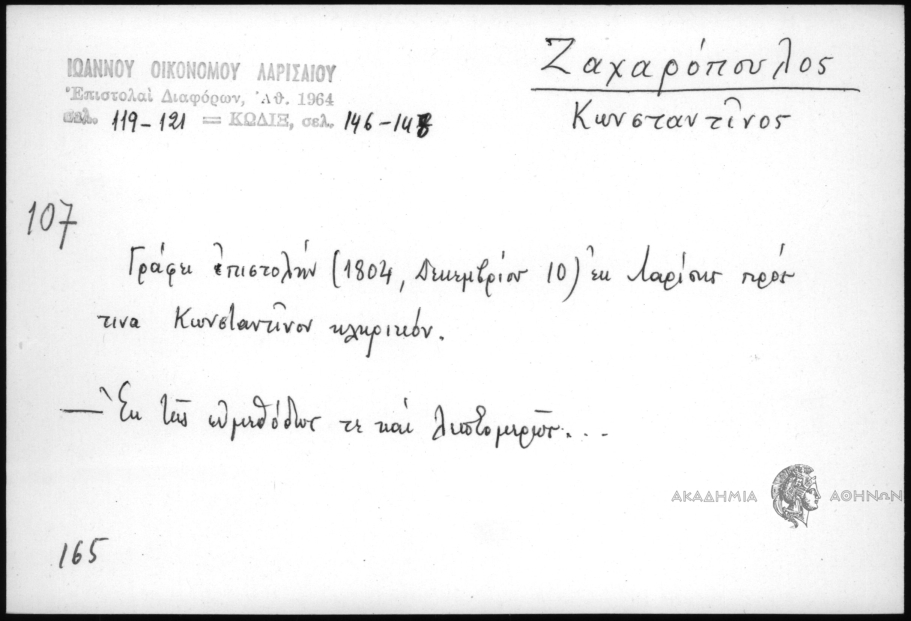 ΙΩΑΝΝΟΥ ΟΙΚΟΝΟΜΟΥ ΛΑΡΙΣΑΙΟΥ
Ἐπιστολαὶ Διαφόρων, Ἀθ. 1964
σελ. 119-121 = ΚΩΔΙΞ, σελ. 146-148
Ζαχαρόπουλος
Κωνσταντῖνος
107
Γράφει ἐπιστολήν (1804, Δεκεμβρίου 10) ἐκ Λαρίσης πρός
τινα Κωνσταντῖνον κληρικόν.
— Ἐκ τῆς εὐμεθόδως τε καί λεπτομερῶς...
ΑΚΑΔΗΜΙΑ ΑΘΗΝΩΝ
165